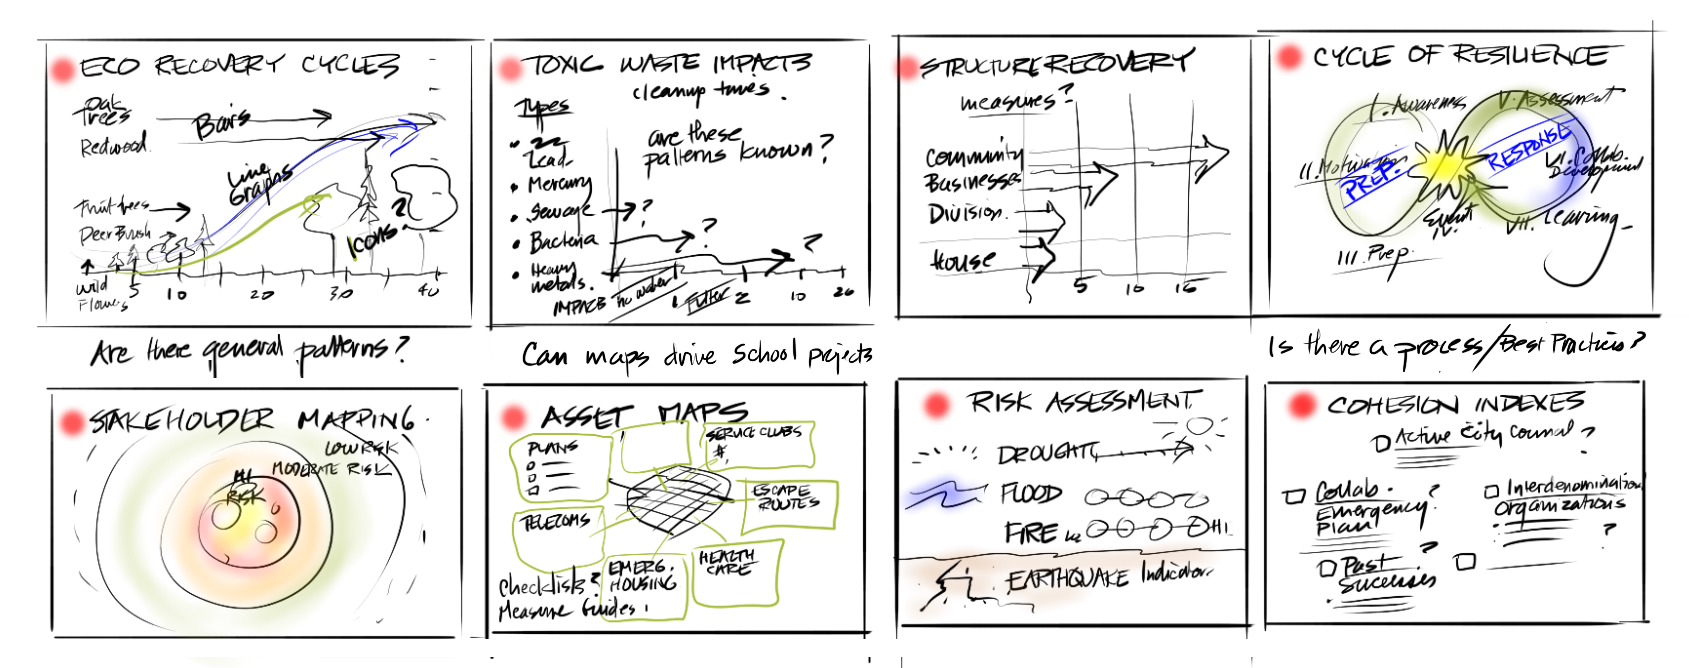 ECO RECOVERY CYCLES
Oak
Trees
Bars
Redwood.
Line
Graphs
Fruit trees
Deer Brush
Icons?
Wild
Flowers
5 10 20 30 40
Are there general patterns?
TOXIC WASTE IMPACTS
cleanup times.
Types
are these
patterns known?
Lead
Mercury
Sewage
?
Bacteria
?
?
Heavy
metals.
IMPACTS no water
Filter
1 2 10 20
Can maps drive School projects
STRUCTURE RECOVERY
measures?
Community
Businesses
Division.
House
5 10 15
CYCLE OF RESILIENCE
I. Awareness
V. Assessment
II. Motivation
PREP.
RESPONSE
VI. Collab.
Development
Event
IV.
VII. Learning
III. Prep.
Is there a process/Best Practices?
STAKEHOLDER MAPPING.
LOW RISK
MODERATE RISK
HI
RISK
ASSET MAPS
PLANS
SERVICE CLUBS
#
ESCAPE
ROUTES
TELECOMS
HEALTH
CARE
EMERG.
HOUSING
Checklists?
Measure Guides!
RISK ASSESSMENT
DROUGHT
FLOOD
FIRE
HI.
EARTHQUAKE Indicator.
COHESION INDEXES
Active City Council?
Collab.
Emergency
Plan
?
Interdenomination
Organizations
?
Past
Successes
?